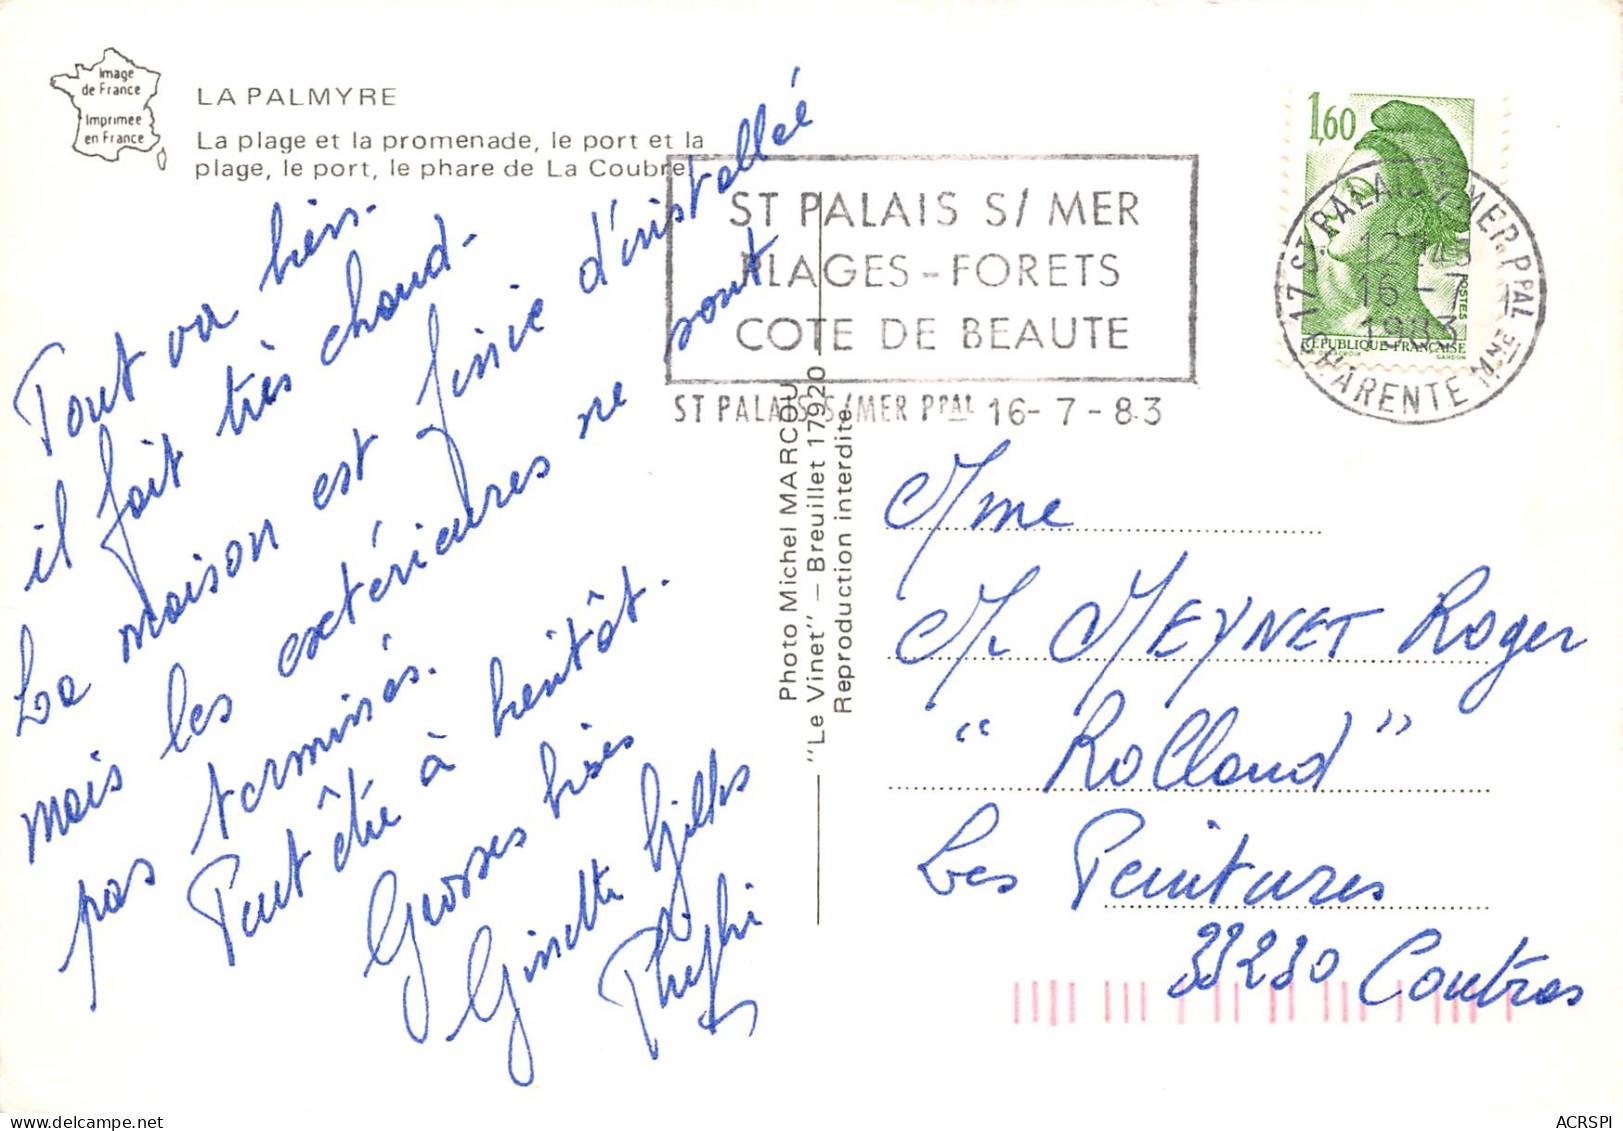 Image
de France
Imprimée
en France
LA PALMYRE
La plage et la promenade, le port et la
plage, le port, le phare de La Coubre.
Tout va bien.
il fait très chaud.
La maison est finie d'installée
mais les extérieures ne sont
pas terminés.
Peut être à bientôt.
Grosses bises
Ginette Gilles
ST PALAIS S/ MER
PLAGES - FORETS
COTE DE BEAUTE
ST PALAIS S/MER PPAL 16-7-83
Photo Michel MARCOU
"Le Vinet" — Breuillet 17920
Reproduction interdite
1,60
POSTES
REPUBLIQUE FRANÇAISE
GANDON
17 ST PALAIS S/MER PPAL
12H45
16-7
1983
CHARENTE Mme
Mme
M MEYNET Roger
" Rolland "
Les Peintures
33230 Coutras
www.delcampe.net
ACRSPI